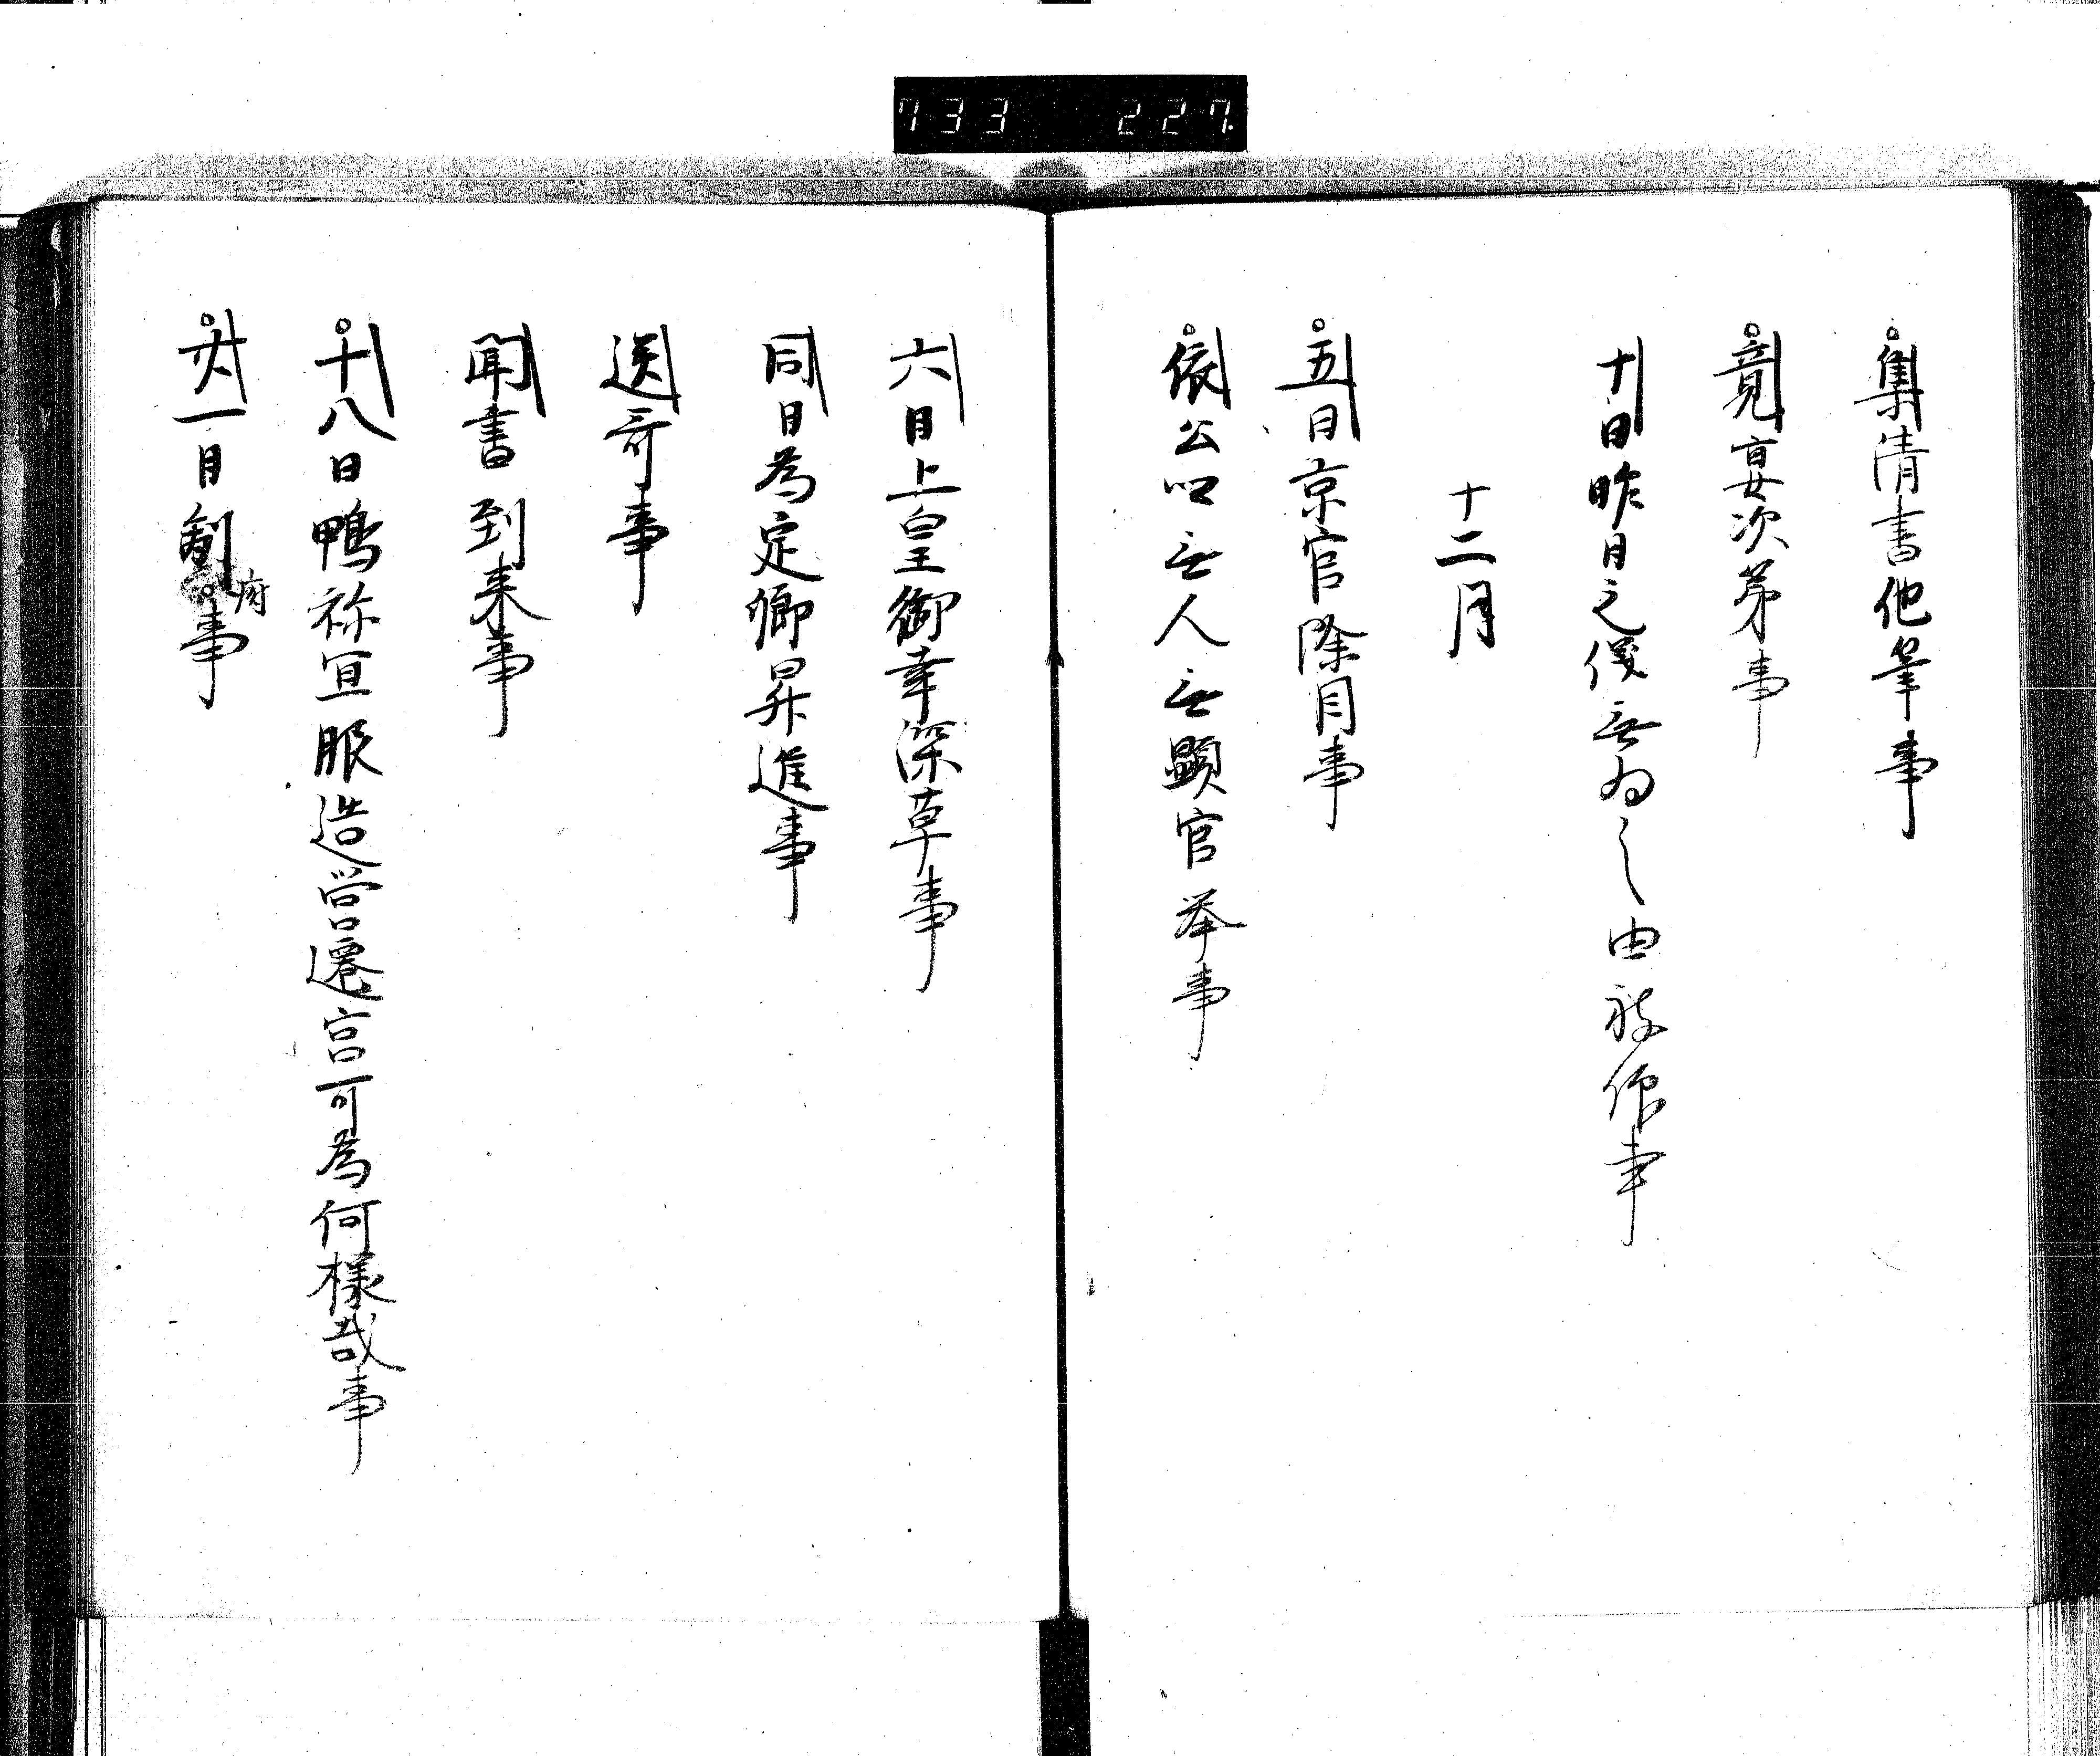 733 227
集清書他筆事
竟宴次第事
十日昨日之儀無為之由被仰事
十二月
五日京官除目事
依公卿無人無顕官挙事
六日上皇御幸深草事
同日為定卿昇進事
送哥事
聞書到来事
十八日鴨祢宜服造営遷宮可為何様哉事
廿一日劔府事